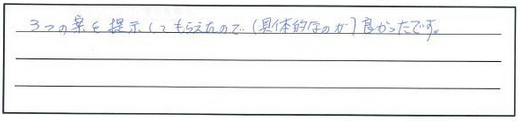 3つの案を提示してもらえたので(具体的なのが)良かったです。